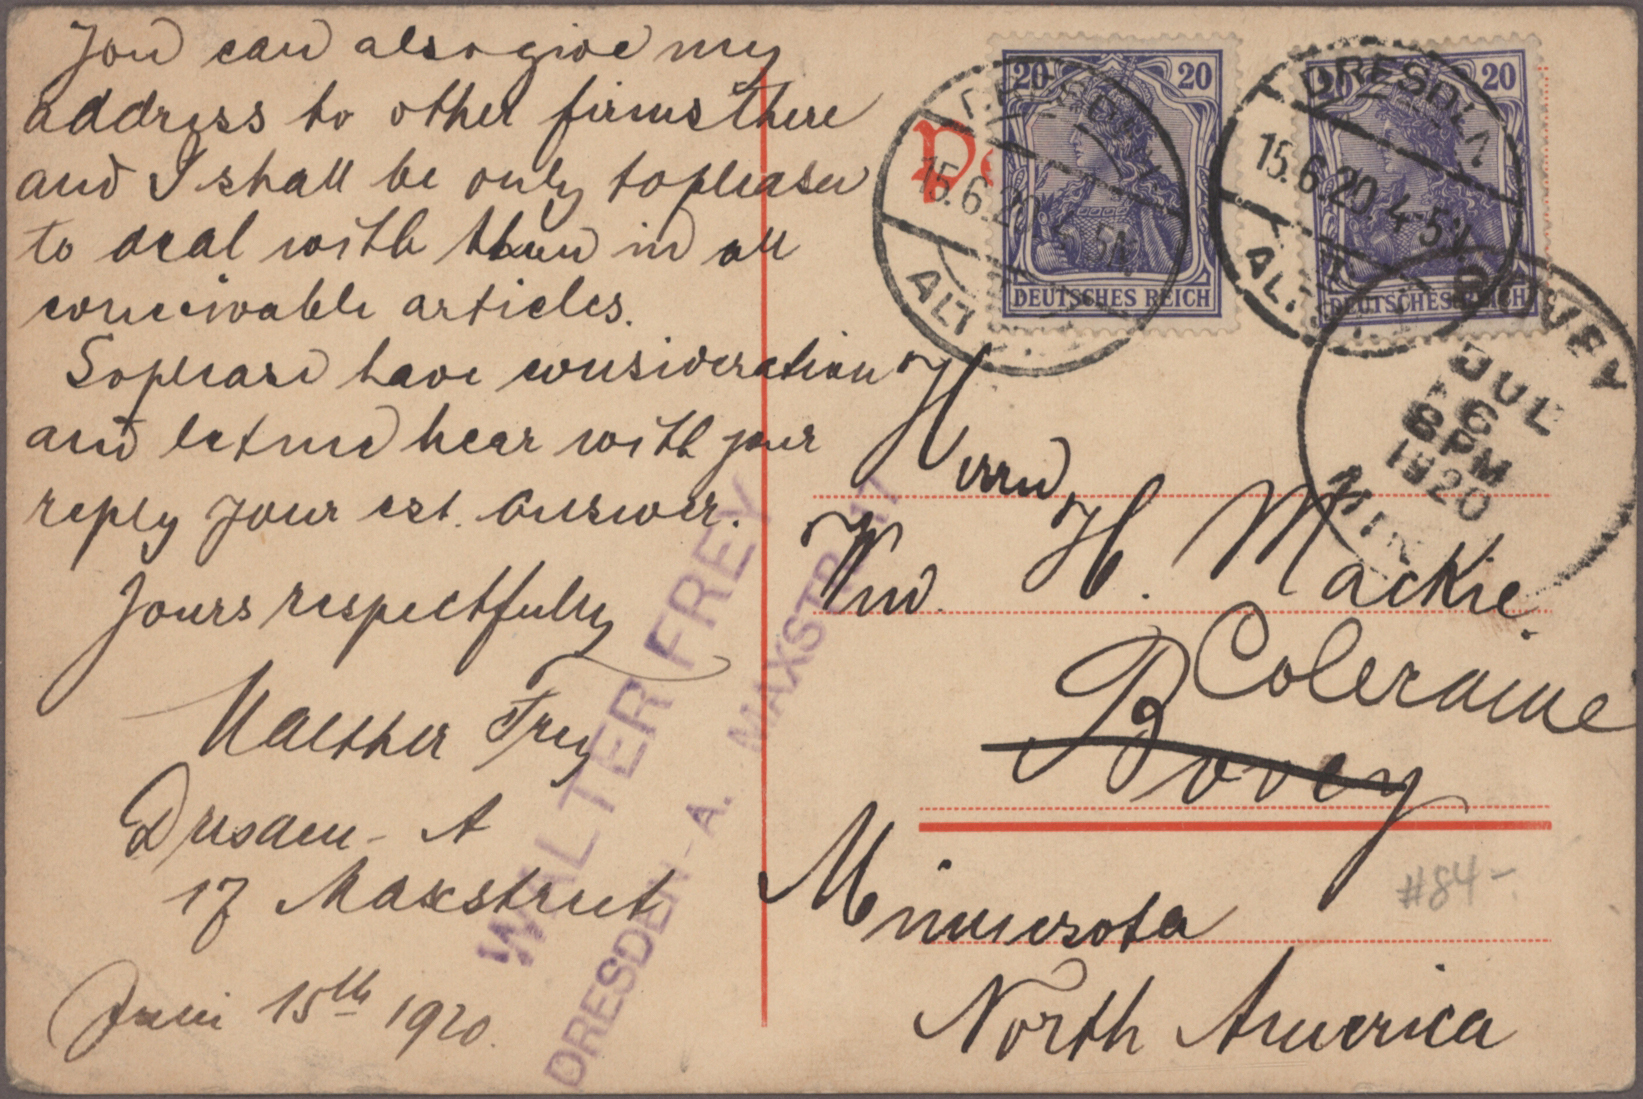 You can also give my
address to other firms there
and I shall be only to pleased
to deal with them in all
conceivable articles.
So please have consideration
and let me hear with your
reply your est. answer.
Yours respectfully
Walther Frey
Dresden-A
17 Maxstreet
Juni 15th 1920.
WALTER FREY
DRESDEN-A. MAXSTR. 17
20 20
DEUTSCHES REICH
20
DEUTSCHES REICH
15.6.20 4-5N
ALT
DRESDEN
15.6.20 4-5N
ALT
BOVEY
JUL
6
6PM
1920
MINN
Herrn
Wm. H. Mackie.
Coleraine
Bovey
Minnesota
North America
#84-